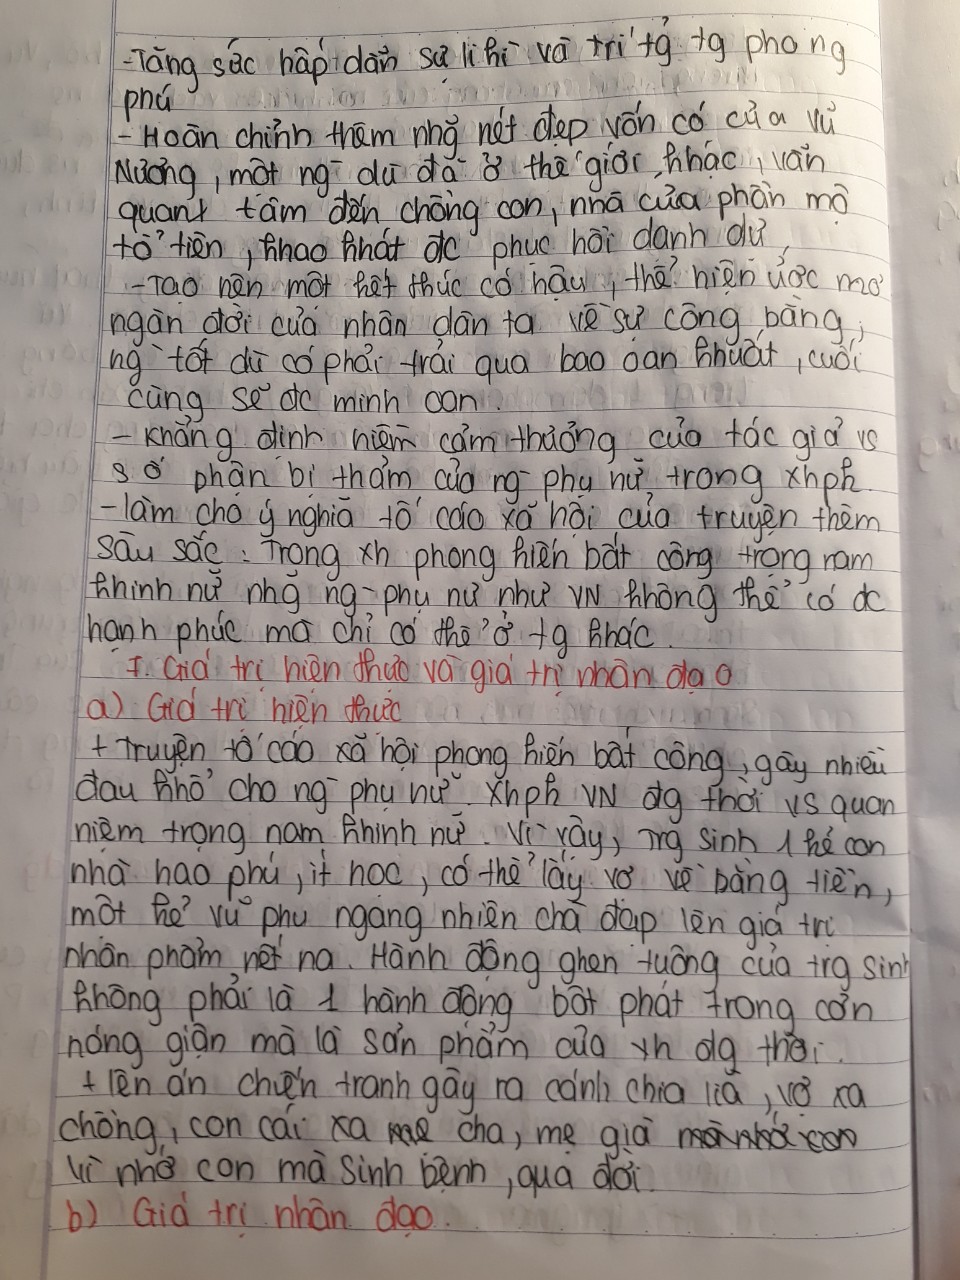 -Tăng sức hấp dẫn sự li kì và trí tg tg phong
phú
- Hoàn chỉnh thêm nhg nét đẹp vốn có của Vũ
Nương, một ng dù đã ở thế giới khác, vẫn
quant tâm đến chồng con, nhà cửa phần mộ
tổ tiên, khao khát đc phục hồi danh dự,
-Tạo nên một kết thúc có hậu, thể hiện ước mơ
ngàn đời của nhân dân ta về sự công bằng,
ng tốt dù có phải trải qua bao oan khuất, cuối
cùng sẽ đc minh oan.
- Khẳng định niềm cảm thương của tác giả vs
số phận bi thảm của ng phụ nữ trong xhpk
-làm cho ý nghĩa tố cáo xã hội của truyện thêm
sâu sắc: Trong xh phong kiến bất công trọng nam
khinh nữ nhg ng phụ nữ như VN không thể có đc
hạnh phúc mà chỉ có thể ở tg khác.
I. Giá trị hiện thực và giá trị nhân đạo
a) Giá trị hiện thực
+ Truyện tố cáo xã hội phong kiến bất công, gây nhiều
đau khổ cho ng phụ nữ. Xhpk VN đg thời vs quan
niệm trọng nam khinh nữ. Vì vậy, Trg Sinh 1 kẻ con
nhà hào phú, ít học, có thể lấy vợ về bằng tiền,
một kẻ vũ phu ngang nhiên chà đạp lên giá trị
nhân phẩm nết na. Hành động ghen tuông của trg sinh
không phải là 1 hành động bột phát trong cơn
nóng giận mà là sản phẩm của xh đg thời.
+ lên án chiến tranh gây ra cảnh chia lìa, vợ xa
chồng, con cái xa cha, mẹ già mà nhớ con
vì nhớ con mà sinh bệnh, qua đời.
b) Giá trị nhân đạo.